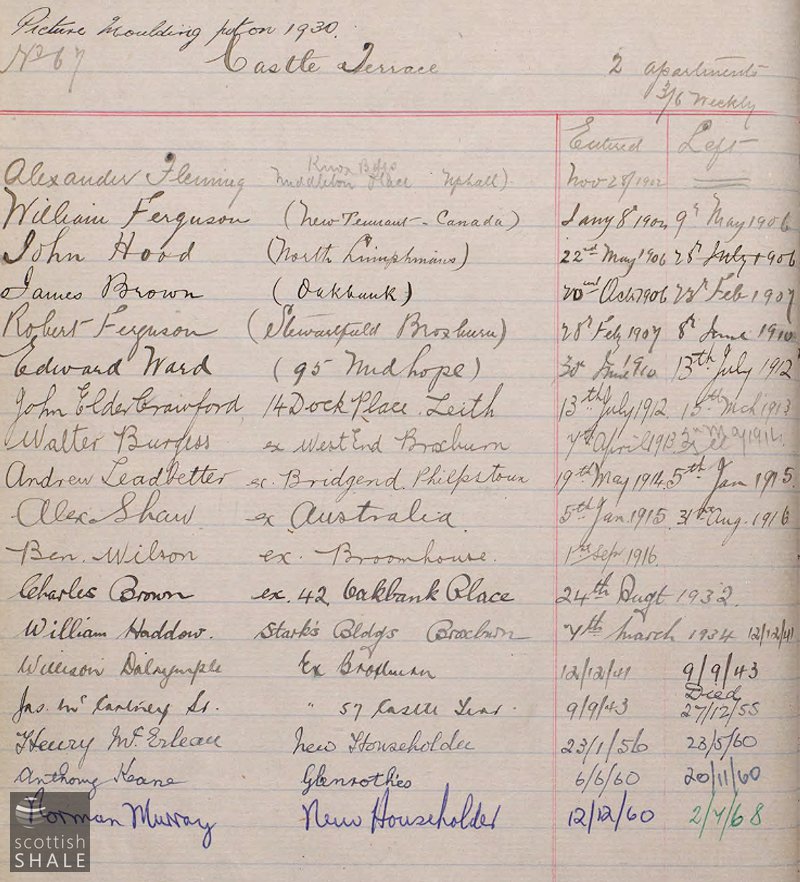 Picture Moulding put on 1930.
No 67 Castle Terrace 2 apartments
3/6 Weekly
Entered Left
Knox Bdgs
Alexander Fleming Middleton Place Uphall). Nov 28/1902
William Ferguson (New Tennant - Canada) Jany 8th 1904 9th May 1906
John Hood (North Limphmans) 22nd May 1906 28th July 1906
James Brown (Oakbank) Oct 1906 Feb 1907
Robert Ferguson (Stewartfield Broxburn) 28th Feb 1907 8th June 1910
Edward Ward (95 Midhope) 30th June 1910 13th July 1912
John Elder Crawford 14 Dock Place Leith 13th July 1912 15th Mch 1913
Walter Burgess ex West End Broxburn 7th April 1913 May 1914
Andrew Leadbetter ex. Bridgend Philpstoun 19th May 1914 5th Jan 1915.
Alex Shaw ex Australia 5th Jan. 1915 31st Aug. 1916
Ben. Wilson ex. Broomhouse. 1st Sepr 1916.
Charles Brown ex. 42 Oakbank Place 24th Augt 1932.
William Haddow. Stark's Bldgs Broxburn 7th March 1934 12/12/41
William Dalrymple Ex Broxburn 12/12/41 9/9/43
Died
Jas. Mc Cartney Sr. " 57 Castle Terr. 9/9/43 27/12/55
Henry McErlean New Householder 23/1/56 23/5/60
Anthony Keane Glenrothes 6/6/60 20/11/60
Norman Murray New Householder 12/12/60 2/7/68
scottish
SHALE